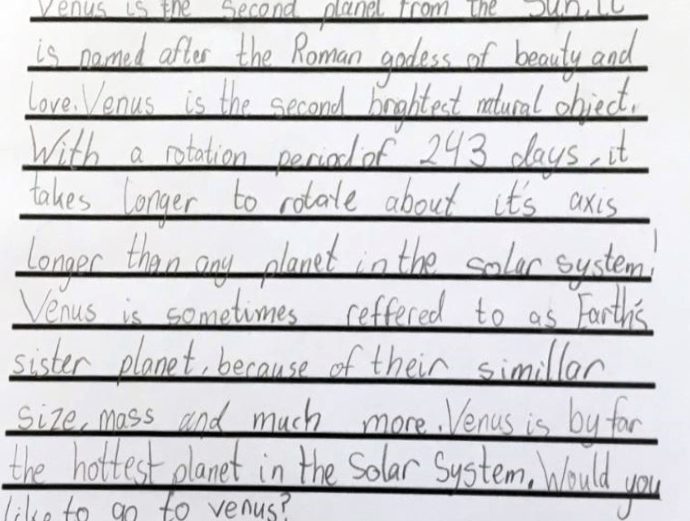 Venus is the second planet from the Sun. It
is named after the Roman godess of beauty and
love. Venus is the second brightest natural object.
With a rotation period of 243 days, it
takes longer to rotate about it's axis
longer than any planet in the solar system!
Venus is sometimes reffered to as Earth's
sister planet, because of their simillar
size, mass and much more. Venus is by far
the hottest planet in the Solar System. Would you
like to go to venus?